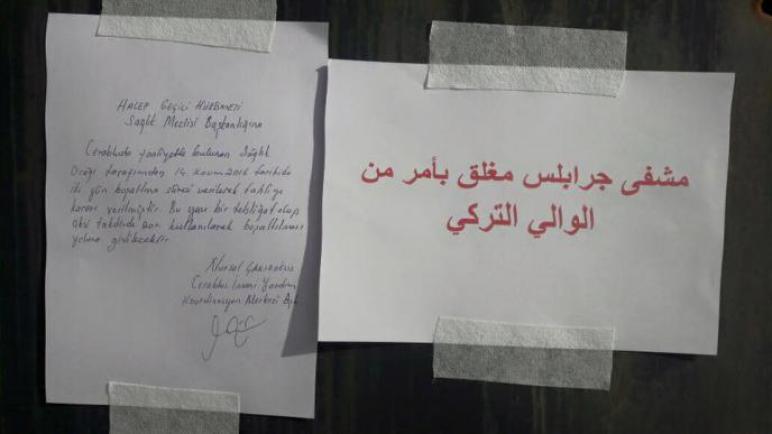 HALEP GEÇİCİ HÜKÜMETİ
Sağlık Meclisi Başkanlığına
Cerablusda faaliyette bulunan Sağlık
Ocağı tarafımızdan 14 Kasım 2016 tarihinde
iki gün boşaltma süresi verilerek tahliye
kararı verilmiştir. Bu yazı bir tebligat olup
aksi takdirde zor kullanılarak boşaltılması
yoluna gidilecektir.
Cerablus İnsani Yardım
Koordinasyon Merkezi Bşk
مشفى جرابلس مغلق بأمر من
الوالي التركي